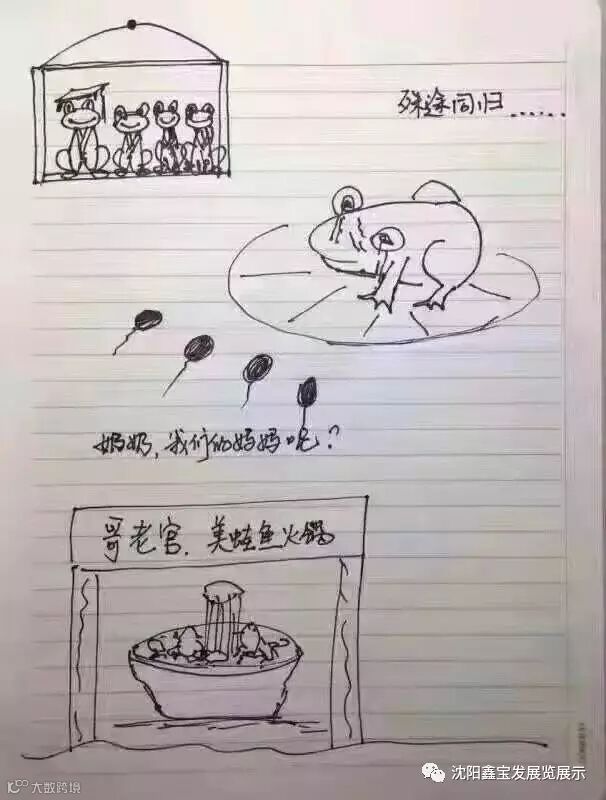 殊途同归......
奶奶,我们的妈妈呢?
哥老官.美蛙鱼火锅
大数跨境
沈阳鑫宝发展览展示